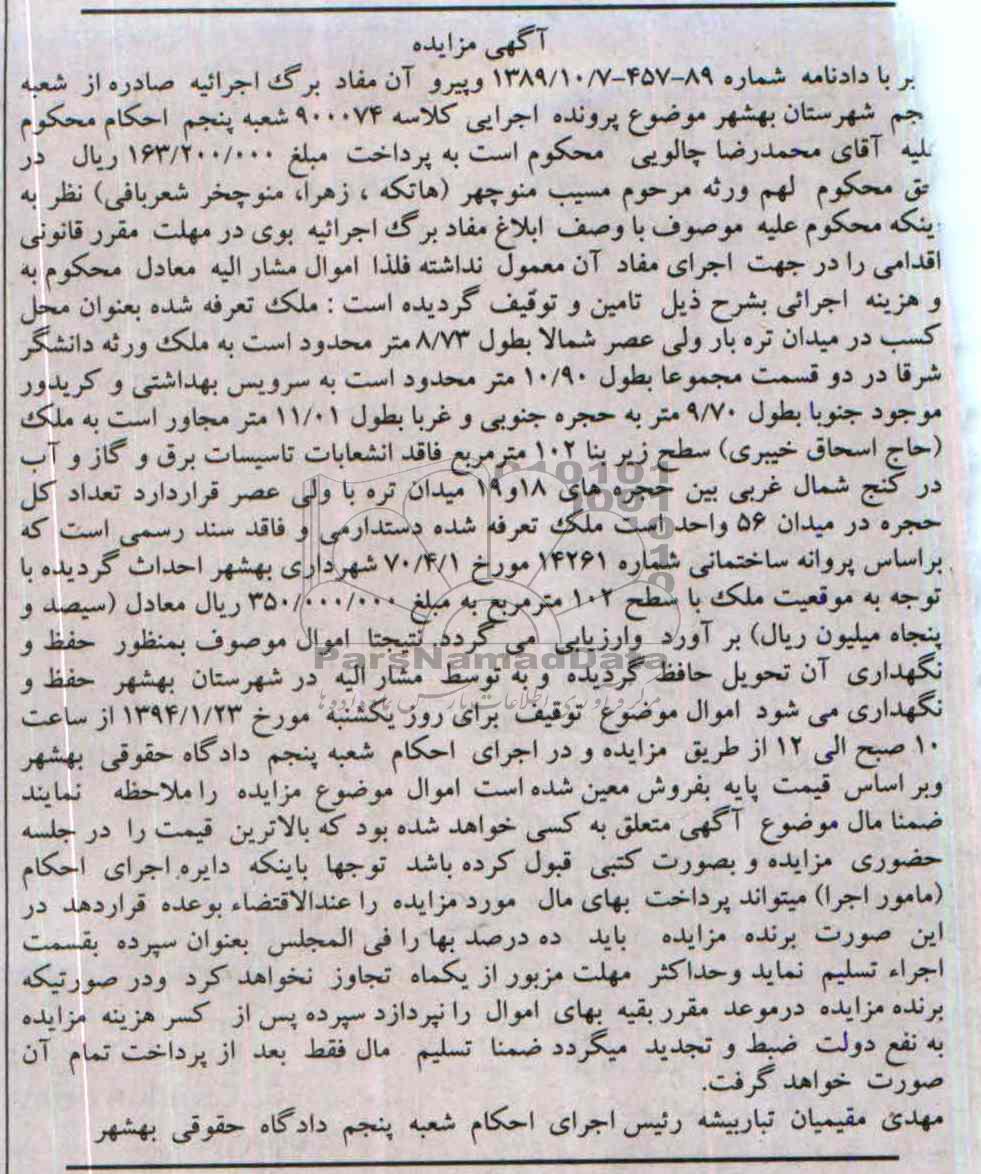 آگهی مزایده
بر با دادنامه شماره ۸۹-۴۵۷-۱۳۸۹/۱۰/۷ وپیرو آن مفاد برگ اجرائیه صادره از شعبه
جم شهرستان بهشهر موضوع پرونده اجرایی کلاسه ۹۰۰۰۷۴ شعبه پنجم احکام محکوم
علیه آقای محمدرضا چالویی محکوم است به پرداخت مبلغ ۱۶۳/۲۰۰/۰۰۰ ریال در
حق محکوم لهم ورثه مرحوم مسیب منوچهر (هاتکه ، زهرا، منوچخر شعربافی) نظر به
ینکه محکوم علیه موصوف با وصف ابلاغ مفاد برگ اجرائیه بوی در مهلت مقرر قانونی
اقدامی را در جهت اجرای مفاد آن معمول نداشته فلذا اموال مشار الیه معادل محکوم به
و هزینه اجرائی بشرح ذیل تامین و توقیف گردیده است : ملک تعرفه شده بعنوان محل
کسب در میدان تره بار ولی عصر شمالا بطول ۸/۷۳ متر محدود است به ملک ورثه دانشگر
شرقا در دو قسمت مجموعا بطول ۱۰/۹۰ متر محدود است به سرویس بهداشتی و کریدور
موجود جنوبا بطول ۹/۷۰ متر به حجره جنوبی و غربا بطول ۱۱/۰۱ متر مجاور است به ملک
(حاج اسحاق خیبری) سطح زیر بنا ۱۰۲ مترمربع فاقد انشعابات تاسیسات برق و گاز و آب
در کنج شمال غربی بین حجره های ۱۸و۱۹ میدان تره با ولی عصر قراردارد تعداد کل
حجره در میدان ۵۶ واحد است ملک تعرفه شده دستدارمی و فاقد سند رسمی است که
براساس پروانه ساختمانی شماره ۱۴۲۶۱ مورخ ۷۰/۴/۱ شهرداری بهشهر احداث گردیده با
توجه به موقعیت ملک با سطح ۱۰۲ مترمربع به مبلغ ۳۵۰/۰۰۰/۰۰۰ ریال معادل (سیصد و
پنجاه میلیون ریال) بر آورد وارزیابی می گردد. نتیجتا اموال موصوف بمنظور حفظ و
ParsNamadData
نگهداری آن تحویل حافظ گردیده و به توسط مشار الیه در شهرستان بهشهر حفظ و
نگهداری می شود اموال موضوع توقیف برای روز یکشنبه مورخ ۱۳۹۴/۱/۲۳ از ساعت
۱۰ صبح الی ۱۲ از طریق مزایده و در اجرای احکام شعبه پنجم دادگاه حقوقی بهشهر
وبر اساس قیمت پایه بفروش معین شده است اموال موضوع مزایده را ملاحظه نمایند
ضمنا مال موضوع آگهی متعلق به کسی خواهد شده بود که بالاترین قیمت را در جلسه
حضوری مزایده و بصورت کتبی قبول کرده باشد توجها باینکه دایره اجرای احکام
(مامور اجرا) میتواند پرداخت بهای مال مورد مزایده را عندالاقتضاء بوعده قراردهد در
این صورت برنده مزایده باید ده درصد بها را فی المجلس بعنوان سپرده بقسمت
اجراء تسلیم نماید وحداکثر مهلت مزبور از یکماه تجاوز نخواهد کرد ودر صورتیکه
برنده مزایده درموعد مقرر بقیه بهای اموال را نپردازد سپرده پس از کسر هزینه مزایده
به نفع دولت ضبط و تجدید میگردد ضمنا تسلیم مال فقط بعد از پرداخت تمام آن
صورت خواهد گرفت.
مهدی مقیمیان تباربیشه رئیس اجرای احکام شعبه پنجم دادگاه حقوقی بهشهر